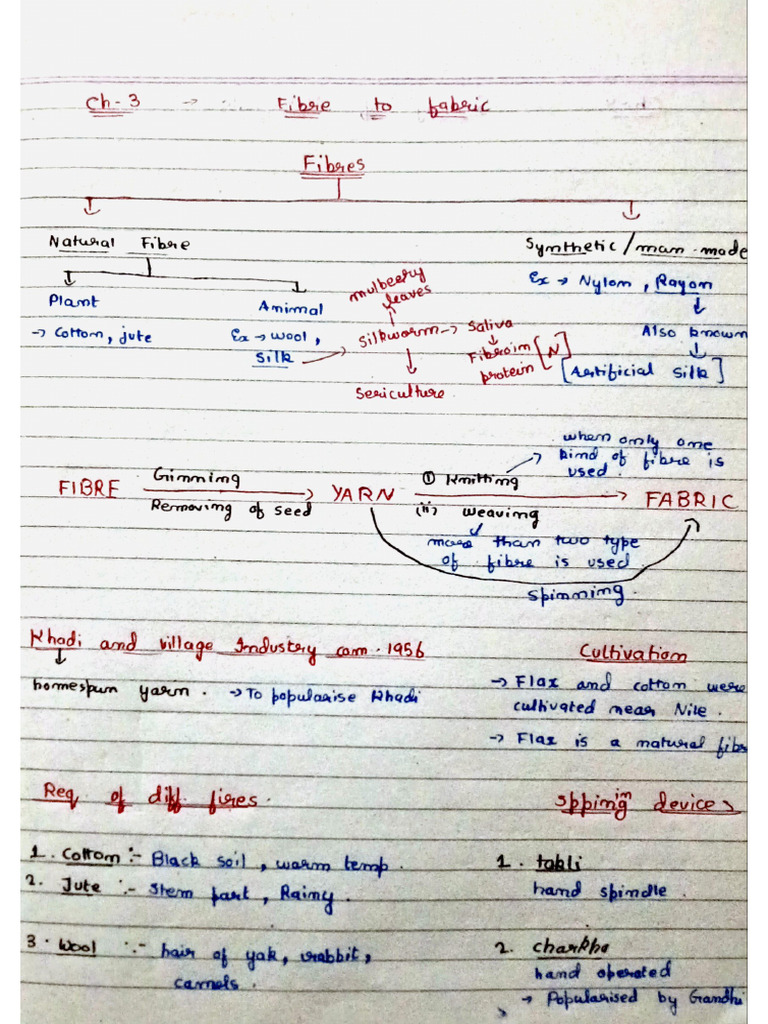 Ch-3 Fibre to fabric
Fibres
Natural Fibre
Synthetic/man-made
Plant
→ Cotton, jute
Animal
Ex → wool,
silk
mulbeery
leaves
silkworm → Saliva
Fibroin [N]
protein
Sericulture
Ex → Nylon, Rayon
Also known
[Artificial silk]
FIBRE
Ginning
Removing of seed
YARN
① Knitting
(ii) weaving
FABRIC
when only one
kind of fibre is
used.
more than two type
of fibre is used
spinning.
Khadi and village Industry com. 1956
homespun yarn. → To popularise Khadi
Cultivation
→ Flax and cotton were
cultivated near Nile.
→ Flax is a natural fibr
Req of diff fires.
1. Cotton :- Black soil, warm temp.
2. Jute :- Stem part, Rainy.
3. Wool :- hair of yak, rabbit,
camels.
Sppining devices
1. takli
hand spindle.
2. charkha
hand operated
→ Popularised by Gandhi